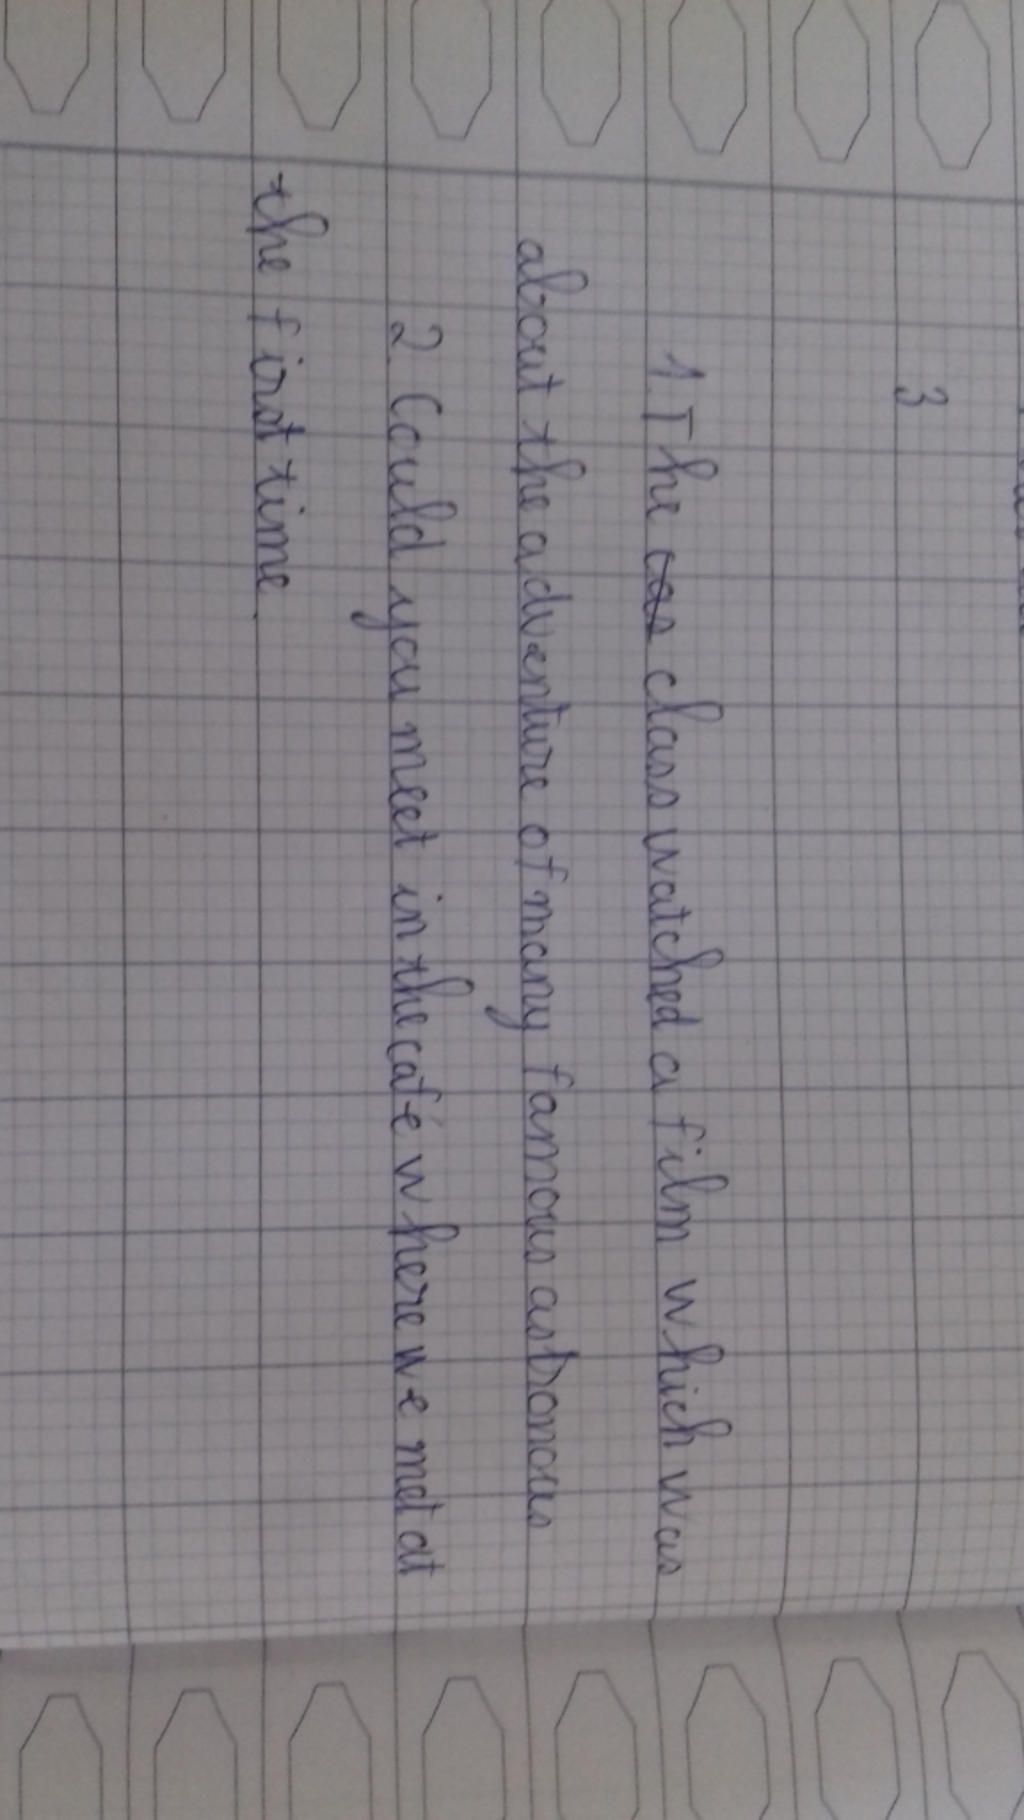 3
1. The class watched a film which was
about the adventure of many famous astronous
2. Could you meet in the café where we met at
the first time.